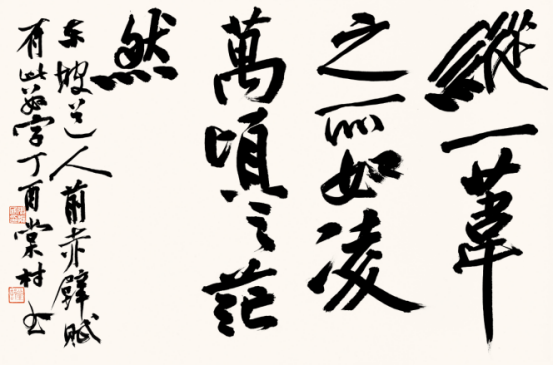 縱一葦
之所如凌
萬頃之茫
然
东坡道人前赤壁賦
有此字丁酉棠村书